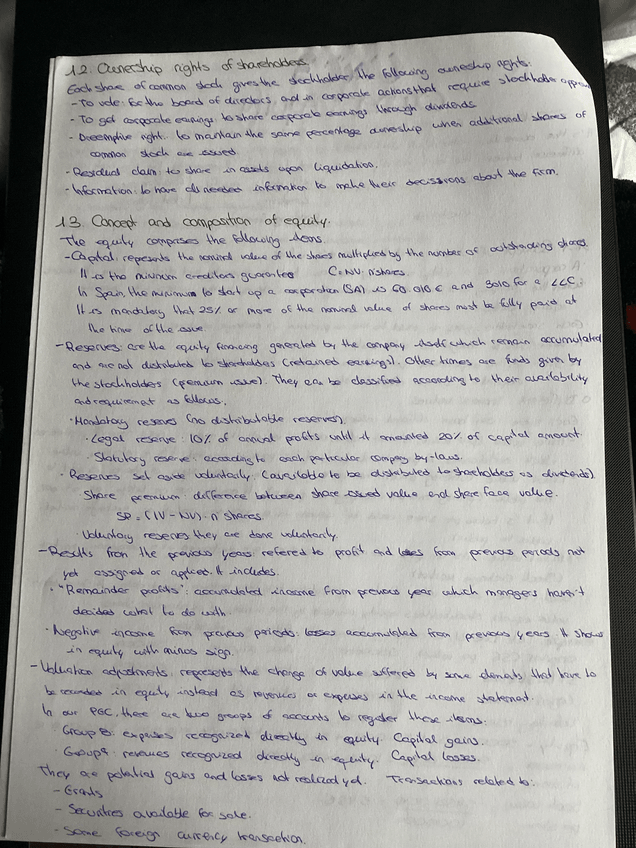 1.2. Ownership rights of shareholders.
Each share of common stock gives the stockholder the following ownership rights:
- To vote: for the board of directors, and in corporate actions that require stockholder
- To get corporate earnings: to share corporate earnings through dividends
- Preemptive right: to maintain the same percentage ownership when additional shares of
common stock are issued.
- Residual claim: to share in assets upon liquidation.
- Information: to have all needed information to make their decissions about the firm.
1.3. Concept and composition of equity.
The equity comprises the following items.
- Capital: represents the nominal value of the shares multiplied by the number of outstanding shares.
It is the minimum creditors guarantee C = NV · nº shares
In Spain, the minimum to start up a corporation (SA) is 60.010 € and 3010 for a LLC.
It is mandatory that 25% or more of the nominal value of shares must be fully paid at
the time of the issue
- Reserves: are the equity financing generated by the company itself which remain accumulated
and are not distributed to shareholders (retained earnings). Other times are funds given by
the stockholders (premium issue). They can be classified according to their availability
and requirement as follows.
· Mandatory reserves (no distributable reserves).
· Legal reserve: 10% of annual profits until it amounted 20% of capital amount.
· Statutory reserve: according to each particular company by-laws.
· Reserves set aside voluntarily: (available to be distributed to shareholders as dividends).
Share premium: difference between share issued value and share face value.
SP = (IV - NV) · nº shares.
· Voluntary reserves they are done voluntarily.
- Results from the previous years: refered to profit and loses from previous periods not
yet assigned or applied. It includes.
· "Remainder profits": accumulated income from previous year which managers haven't
decided what to do with.
· Negative income from previous periods: losses accumulated from previous years. It shows
in equity with minus sign.
- Valuation adjustments: represents the change of value suffered by some elements that have to
be recorded in equity instead as revenues or expenses in the income statement.
In our PGC, there are two groups of accounts to register these items:
Group 8: expenses recognized directly in equity. Capital gains.
Group 9: revenues recognized directly in equity. Capital losses.
They are potential gains and losses not realized yet. Transactions related to:
- Grants
- Securities available for sale.
- Some foreign currency transaction.